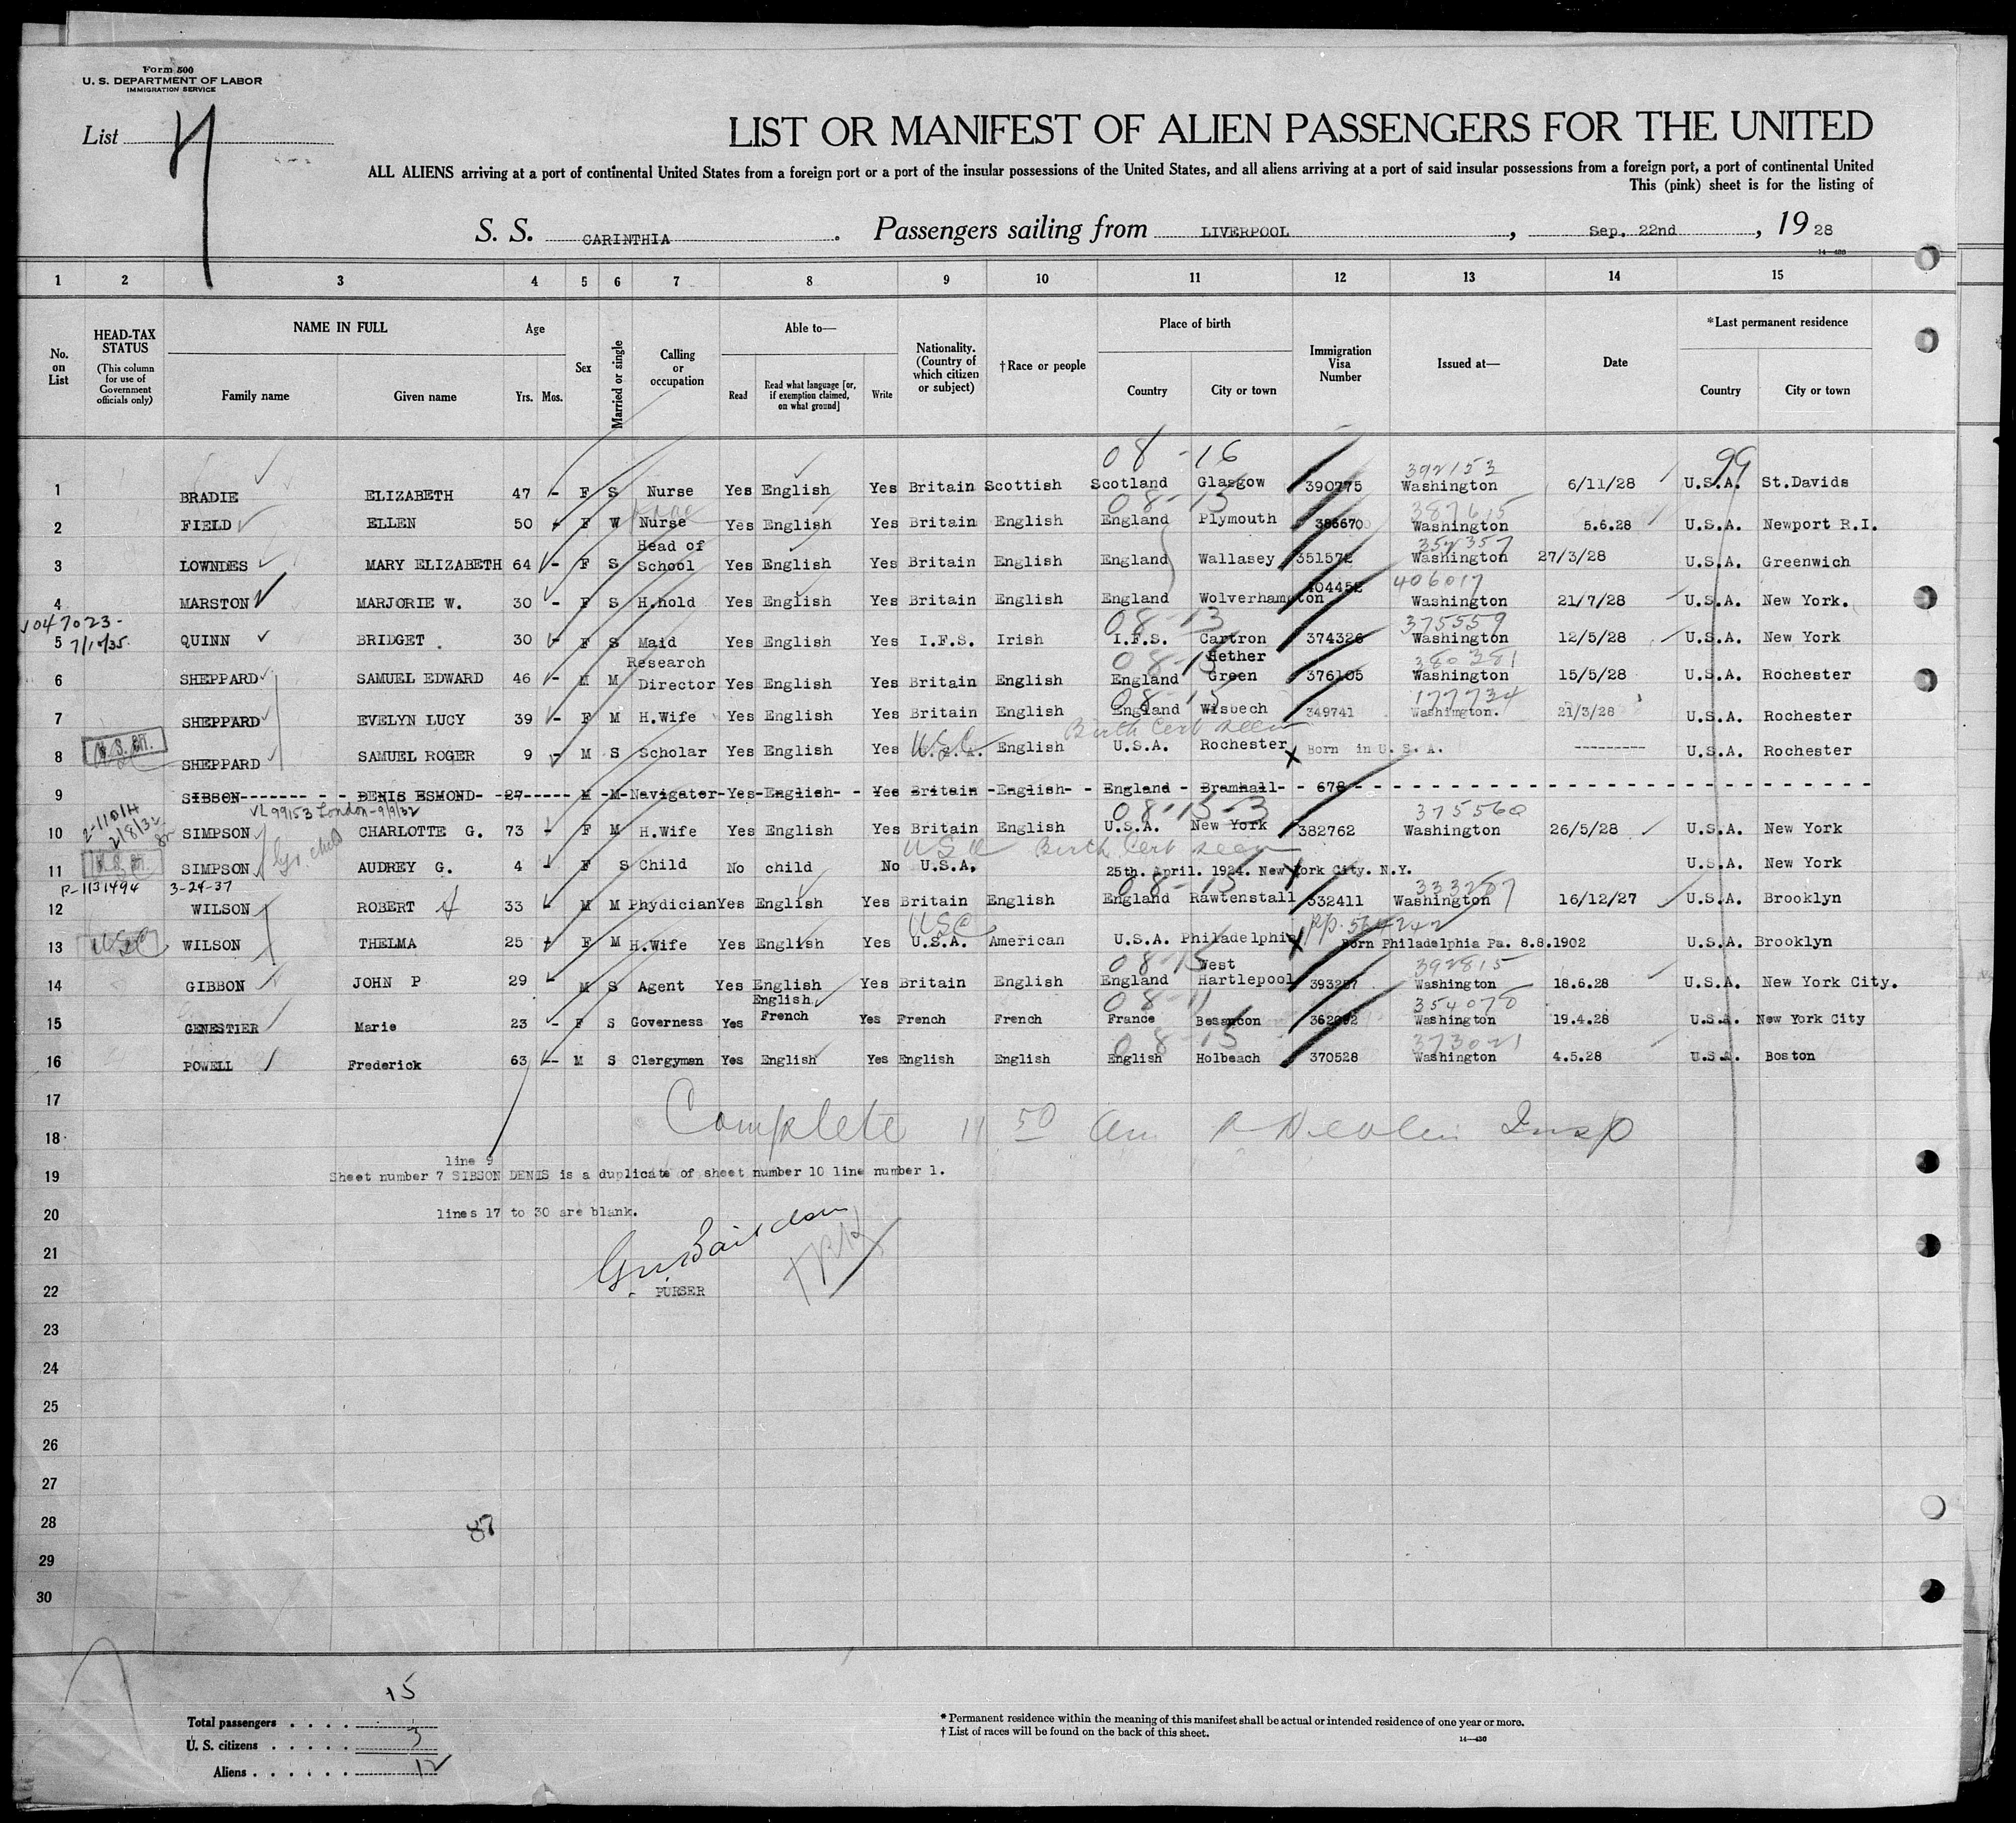 Form 500
U. S. DEPARTMENT OF LABOR
IMMIGRATION SERVICE
List 7
LIST OR MANIFEST OF ALIEN PASSENGERS FOR THE UNITED
ALL ALIENS arriving at a port of continental United States from a foreign port or a port of the insular possessions of the United States, and all aliens arriving at a port of said insular possessions from a foreign port, a port of continental United
This (pink) sheet is for the listing of
S. S. CARINTHIA. Passengers sailing from LIVERPOOL, Sep. 22nd, 19 28
14—430
1 2 3 4 5 6 7 8 9 10 11 12 13 14 15
No. on List
HEAD-TAX STATUS (This column for use of Government officials only)
NAME IN FULL
Family name Given name
Age
Yrs. Mos.
Sex
Married or single
Calling or occupation
Able to—
Read Read what language [or, if exemption claimed, on what ground] Write
Nationality. (Country of which citizen or subject)
†Race or people
Place of birth
Country City or town
Immigration Visa Number
Issued at—
Date
*Last permanent residence
Country City or town
08-16 392153 99
1 BRADIE ELIZABETH 47 - F S Nurse Yes English Yes Britain Scottish Scotland Glasgow 390775 Washington 6/11/28 U.S.A. St.Davids
08-15 387615
2 FIELD ELLEN 50 - F W Nurse Yes English Yes Britain English England Plymouth 386670 Washington 5.6.28 U.S.A. Newport R.I.
352357
3 LOWNDES MARY ELIZABETH 64 - F S Head of School Yes English Yes Britain English England Wallasey 351572 Washington 27/3/28 U.S.A. Greenwich
406017
4 MARSTON MARJORIE W. 30 - F S H.hold Yes English Yes Britain English England Wolverhampton 404452 Washington 21/7/28 U.S.A. New York.
1047023- 7/10/35. 08-13 375559
5 QUINN BRIDGET . 30 - F S Maid Yes English Yes I.F.S. Irish I.F.S. Cartron 374326 Washington 12/5/28 U.S.A. New York
08-15 380381
6 SHEPPARD SAMUEL EDWARD 46 - M M Research Director Yes English Yes Britain English England Hether Green 376105 Washington 15/5/28 U.S.A. Rochester
08-15 177734
7 SHEPPARD EVELYN LUCY 39 - F M H.Wife Yes English Yes Britain English England Wisbech 349741 Washington. 21/3/28 U.S.A. Rochester
Birth Cert seen
8 SHEPPARD SAMUEL ROGER 9 - M S Scholar Yes English Yes U.S.A. English U.S.A. Rochester X Born in U.S.A. --------- U.S.A. Rochester
9 SIBSON DENIS ESMOND 27 M M Navigator Yes English Yes Britain English England Bramhall 678
VL 99153 London-9/9/32 08-15-3 375560
2-11014 2/8/32
10 SIMPSON CHARLOTTE G. 73 - F M H.Wife Yes English Yes Britain English U.S.A. New York 382762 Washington 26/5/28 U.S.A. New York
Gr. child USC Birth Cert seen
11 SIMPSON AUDREY G. 4 - F S Child No child No U.S.A. 25th. April. 1924. New York City. N.Y. U.S.A. New York
P-1131494 3-24-37 08-15 333287
12 WILSON ROBERT 33 - M M Phydician Yes English Yes Britain English England Rawtenstall 332411 Washington 16/12/27 U.S.A. Brooklyn
USC USC
13 WILSON THELMA 25 - F M H.Wife Yes English Yes U.S.A. American U.S.A. Philadelphia X Born Philadelphia Pa. 8.8.1902 U.S.A. Brooklyn
08-15 392815
14 GIBBON JOHN P 29 - M S Agent Yes English Yes Britain English England West Hartlepool 393257 Washington 18.6.28 U.S.A. New York City.
08-11 354078
15 GENESTIER Marie 23 - F S Governess Yes English. French Yes French French France Besancon 362892 Washington 19.4.28 U.S.A. New York City
08-15 373021
16 POWELL Frederick 63 -- M S Clergyman Yes English Yes English English English Holbeach 370528 Washington 4.5.28 U.S.A. Boston
17
Complete 11 50 am Insp
18
line 9
19 Sheet number 7 SIBSON DENIS is a duplicate of sheet number 10 line number 1.
20 lines 17 to 30 are blank.
21
22 PURSER
23
24
25
26
27
28
87
29
30
Total passengers . . . . 15
U. S. citizens . . . . . 3
Aliens . . . . . . 12
* Permanent residence within the meaning of this manifest shall be actual or intended residence of one year or more.
† List of races will be found on the back of this sheet.
14—430